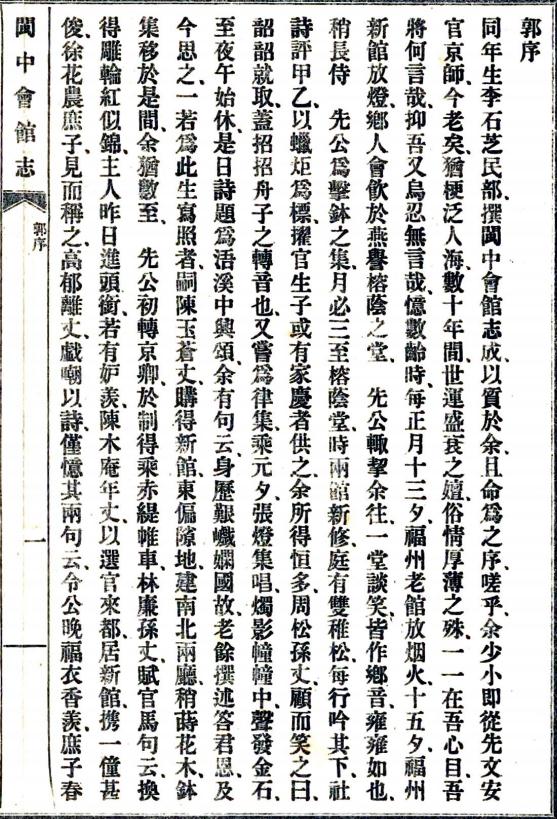 郭序
同年生李石芝民部、撰閩中會館志成、以質於余、且命爲之序、嗟乎、余少小即從先文安
官京師、今老矣、猶梗泛人海、數十年間、世運盛衰之嬗、俗情厚薄之殊、一一在吾心目、吾
將何言哉、抑吾又烏忍無言哉、憶數齡時、每正月十三夕、福州老館放烟火、十五夕、福州
新館放燈、鄉人會飲於燕譽榕蔭之堂、先公輒挈余往、一堂談笑、皆作鄉音、雍雍如也、
稍長侍 先公爲擊鉢之集、月必三至榕蔭堂、時兩館新修、庭有雙稚松、每行吟其下、社
詩評甲乙、以蠟炬爲標、擢官生子或有家慶者供之、余所得恒多、周松孫丈、顧而笑之曰、
韶韶就取、蓋招招舟子之轉音也、又嘗爲律集、乘元夕、張燈集唱、燭影幢幢中、聲發金石、
至夜午始休、是日詩題爲浯溪中興頌、余有句云、身歷艱巇嫻國故、老餘撰述答君恩、及
今思之、一若爲此生寫照者、嗣陳玉蒼丈、購得新館東偏隙地、建南北兩廳、稍蒔花木、鉢
集移於是間、余猶數至、 先公初轉京卿、於制得乘赤緹帷車、林廉孫丈、賦官馬句云、換
得雕輪紅似錦、主人昨日進頭銜、若有妒羨、陳木庵年丈、以選官來都、居新館、携一僮甚
俊、徐花農庶子、見而稱之、高郁離丈、戲嘲以詩、僅憶其兩句云、令公晚福衣香羨、庶子春
閩中會館志
郭序
一